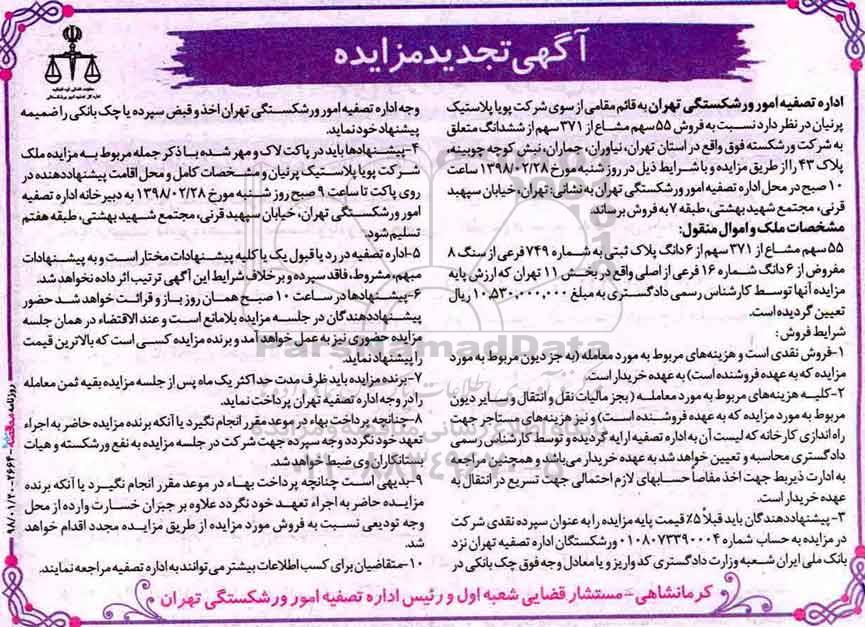 آگهی تجدید مزایده
اداره تصفیه امور ورشکستگی تهران به قائم مقامی از سوی شرکت پویا پلاستیک
پرنیان در نظر دارد نسبت به فروش ۵۵ سهم مشاع از ۳۷۱ سهم از ششدانگ متعلق
به شرکت ورشکسته فوق واقع در استان تهران، نیاوران، جماران، نبش کوچه چوبینه،
پلاک ۴۳ را از طریق مزایده و با شرایط ذیل در روز شنبه مورخ ۱۳۹۸/۰۲/۲۸ ساعت
۱۰ صبح در محل اداره تصفیه امور ورشکستگی تهران به نشانی: تهران، خیابان سپهبد
قرنی، مجتمع شهید بهشتی، طبقه ۷ به فروش برساند.
مشخصات ملک و اموال منقول:
۵۵ سهم مشاع از ۳۷۱ سهم از ۶ دانگ پلاک ثبتی به شماره ۷۴۹ فرعی از سنگ ۸
مفروض از ۶ دانگ شماره ۱۶ فرعی از اصلی واقع در بخش ۱۱ تهران که ارزش پایه
مزایده آنها توسط کارشناس رسمی دادگستری به مبلغ ۱۰,۵۳۰,۰۰۰,۰۰۰ ریال
تعیین گردیده است.
شرایط فروش:
۱-فروش نقدی است و هزینه‌های مربوط به مورد معامله (به جز دیون مربوط به مورد
مزایده که به عهده فروشنده است) به عهده خریدار است.
۲-کلیه هزینه‌های مربوط به مورد معامله (بجز مالیات نقل و انتقال و سایر دیون
مربوط به مورد مزایده که به عهده فروشنده است) و نیز هزینه‌های مستاجر جهت
راه اندازی کارخانه که لیست آن به اداره تصفیه ارایه گردیده و توسط کارشناس رسمی
دادگستری محاسبه و تعیین خواهد شد به عهده خریدار می‌باشد و همچنین مراجعه
به ادارت ذیربط جهت اخذ مفاصا حسابهای لازم احتمالی جهت تسریع در انتقال به
عهده خریدار است.
۳-پیشنهاددهندگان باید قبلاً ۵٪ قیمت پایه مزایده را به عنوان سپرده نقدی شرکت
در مزایده به حساب شماره ۰۱۰۸۰۷۳۳۹۰۰۰۴ ورشکستگان اداره تصفیه تهران نزد
بانک ملی ایران شعبه وزارت دادگستری کد واریز و یا معادل وجه فوق چک بانکی در
وجه اداره تصفیه امور ورشکستگی تهران اخذ و قبض سپرده یا چک بانکی را ضمیمه
پیشنهاد خود نماید.
۴-پیشنهادها باید در پاکت لاک و مهر شده با ذکر جمله مربوط به مزایده ملک
شرکت پویا پلاستیک پرنیان و مشخصات کامل و محل اقامت پیشنهاددهنده در
روی پاکت تا ساعت ۹ صبح روز شنبه مورخ ۱۳۹۸/۰۲/۲۸ به دبیرخانه اداره تصفیه
امور ورشکستگی تهران، خیابان سپهبد قرنی، مجتمع شهید بهشتی، طبقه هفتم
تسلیم شود.
۵-اداره تصفیه در رد یا قبول یک یا کلیه پیشنهادات مختار است و به پیشنهادات
مبهم، مشروط، فاقد سپرده و برخلاف شرایط این آگهی ترتیب اثر داده نخواهد شد.
۶-پیشنهادها در ساعت ۱۰ صبح همان روز باز و قرائت خواهد شد حضور
پیشنهاددهندگان در جلسه مزایده بلامانع است و عند الاقتضاء در همان جلسه
مزایده حضوری نیز به عمل خواهد آمد و برنده مزایده کسی است که بالاترین قیمت
را پیشنهاد نماید.
۷-برنده مزایده باید ظرف مدت حداکثر یک ماه پس از جلسه مزایده بقیه ثمن معامله
را در وجه اداره تصفیه تهران پرداخت نماید.
۸-چنانچه پرداخت بهاء در موعد مقرر انجام نگیرد یا آنکه برنده مزایده حاضر به اجراء
تعهد خود نگردد وجه سپرده جهت شرکت در جلسه مزایده به نفع ورشکسته و هیات
بستانکاران وی ضبط خواهد شد.
۹-بدیهی است چنانچه پرداخت بهاء در موعد مقرر انجام نگیرد یا آنکه برنده
مزایده حاضر به اجراء تعهد خود نگردد علاوه بر جبران خسارت وارده از محل
وجه تودیعی نسبت به فروش مورد مزایده از طریق مزایده مجدد اقدام خواهد
شد.
۱۰-متقاضیان برای کسب اطلاعات بیشتر می‌توانند به اداره تصفیه مراجعه نمایند.
کرمانشاهی - مستشار قضایی شعبه اول و رئیس اداره تصفیه امور ورشکستگی تهران
ParsNamadData
۰۲۱-۸۸۳۴۹۶۷۰-۵